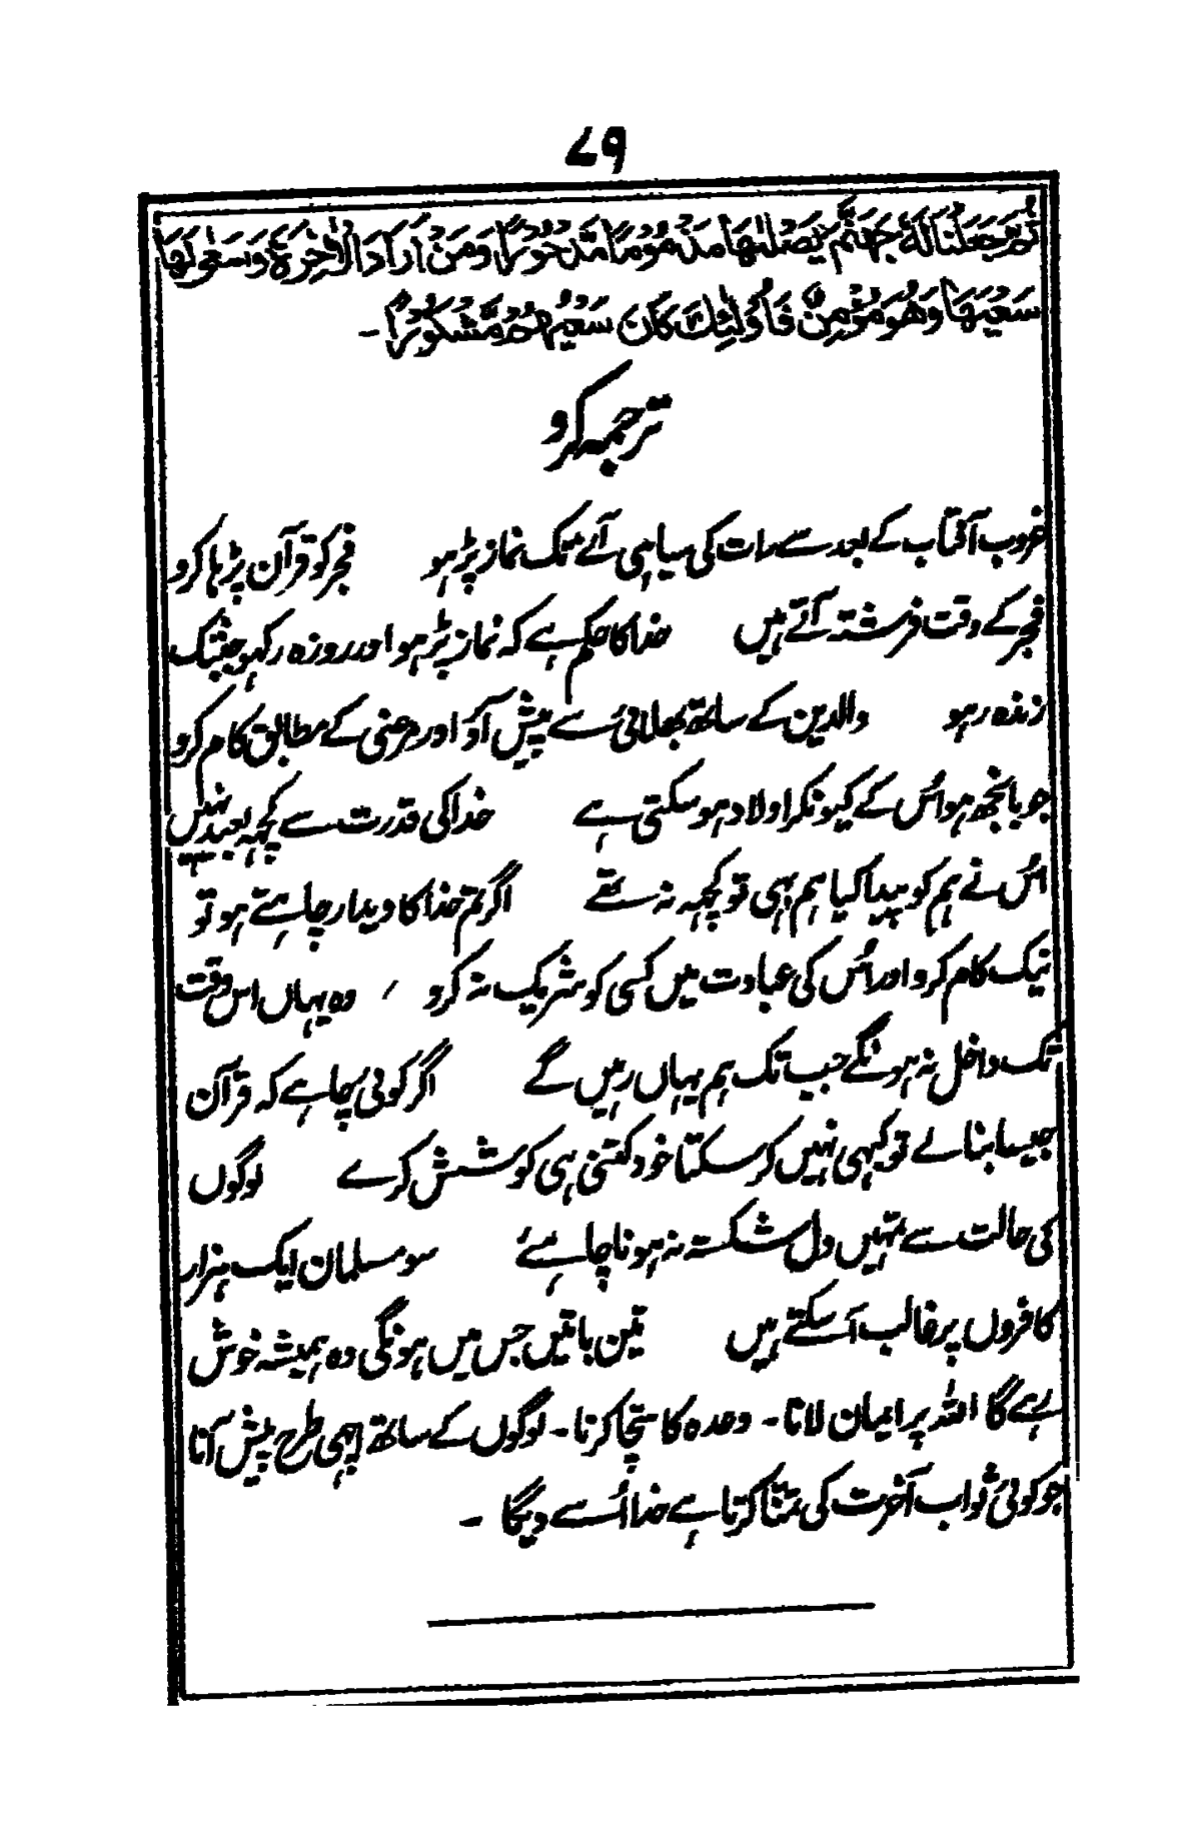 ۷۹
ثُمَّ جَعَلْنَا لَهٗ جَهَنَّمَ يَصْلٰىهَا مَذْمُوْمًا مَّدْحُوْرًا وَمَنْ اَرَادَ الْاٰخِرَةَ وَسَعٰى لَهَا
سَعْيَهَا وَهُوَ مُؤْمِنٌ فَاُولٰٓئِكَ كَانَ سَعْيُهُمْ مَّشْكُوْرًا ۔
ترجمہ کرو
غروب آفتاب کے بعد سے رات کی سیاہی آنے تک نماز پڑہو فجر کو قرآن پڑہا کرو
فجر کے وقت فرشتہ آتے ہیں خدا کا حکم ہے کہ نماز پڑہو اور روزہ رکہو جبتک
زندہ رہو والدین کے ساتھ بھلائی سے پیش آؤ اور مرضی کے مطابق کام کرو
جو بانجھ ہو اُس کے کیونکر اولاد ہو سکتی ہے خدا کی قدرت سے کچہہ بعید نہیں
اُس نے ہم کو پیدا کیا ہم بہی تو کچہہ نہ تہے اگر تم خدا کا دیدار چاہتے ہو تو
نیک کام کرو اور اُس کی عبادت میں کسی کو شریک نہ کرو ، وہ یہاں اس وقت
تک داخل نہ ہونگے جب تک ہم یہاں رہیں گے اگر کوئی چاہے کہ قرآن
جیسا بنالے تو کبہی نہیں کر سکتا خود کتنی ہی کوشش کرے لوگوں
کی حالت سے تمہیں دل شکستہ نہ ہونا چاہئے سو مسلمان ایک ہزار
کافروں پر غالب آسکتے ہیں تین باتیں جس میں ہونگی وہ ہمیشہ خوش
رہے گا اللہ پر ایمان لانا ۔ وعدہ کا سچا کرنا ۔ لوگوں کے ساتھ اچہی طرح پیش آنا
جو کوئی ثواب آخرت کی تمنّا کرتا ہے خدا اُسے دیگا ۔